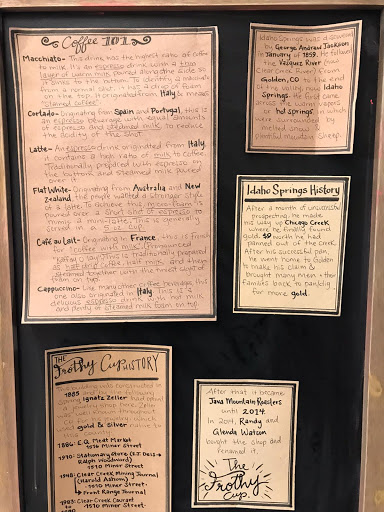 Coffee 101
Macchiato- This drink has the highest ratio of coffee
to milk. It's an espresso drink with a tiny
layer of warm milk poured alongside the side so
it sinks to the bottom. To identify a macchiato
from a normal shot, a drop of foam
on the top. It originated from Italy & means
"stained coffee".
Cortado- Originating from Spain and Portugal, this is
an espresso beverage with equal amounts
of espresso and steamed milk to reduce
the acidity of the shot.
Latte- An espresso drink originated from Italy,
it contains a high ratio of milk to coffee.
Traditionally prepared with espresso on
the bottom and steamed milk poured
over.
Flat White- Originating from Australia and New
Zealand, the people wanted a stronger style
of a latte. To achieve this, micro-foam is
poured over a short shot of espresso to
mimic a mini latte. This is generally
served in a 5 oz. cup.
Café au Lait- Originating in France, this is French
for "coffee with milk" (pronounced
) This is traditionally prepared
as half drip coffee, half milk, and then
steamed together with the tiniest layer
of foam on top.
Cappuccino- Like many other coffee beverages, this
one also originated in Italy. This is a
delicious espresso drink with hot milk
and plenty of steamed milk foam on top.
Idaho Springs was discovered
by George Andrew Jackson
in January of 1859. He followed
the Vasquez River (now
Clear Creek River) from
Golden, CO to the end
of the valley, now Idaho
Springs. He first came
across the warm vapors
of hot springs
which were surrounded by
melted snow &
mountain sheep.
Idaho Springs History
After a month of unsuccessful
prospecting, he made
his way up Chicago Creek
where he finally found
gold. $9 worth he had
panned out of the Creek.
After his successful pan,
he went home to Golden
to make his claim &
brought many men & their
families back to pan/dig
for more gold.
The
Frothy Cup History
This building was constructed in
1885
Ignatz Zeller had
gold & silver
1886- E.Q. Meat Market
1516 Miner Street
1910- Stationary Store
Ralph Woodward)
1510 Miner Street
1948- Clear Creek Mining Journal
(Harold )
1510 Miner Street
→ Front Range Journal
1983- Clear Creek Courant
to 1510 Miner Street
After that it became
Java Mountain Roasters
until 2014.
In 2014, Randy and
Glenda Watson
bought the shop and
renamed it,
The
Frothy
Cup.